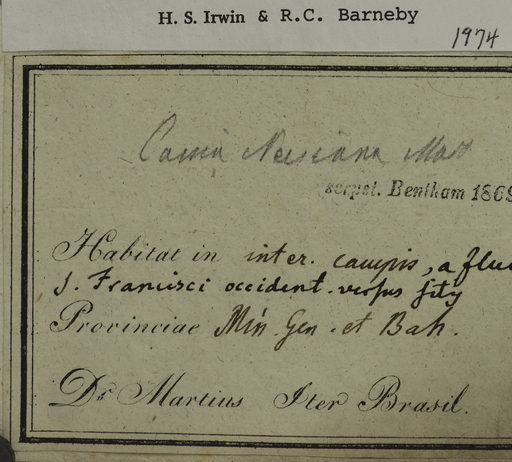 H. S. Irwin & R.C. Barneby
1974
Cassia Neesiana Mart
scrpst. Bentham 1869
Habitat in inter. campis, a fluv
S. Francisci occident. versus
Provinciae Min. Gen. et Bah.
Dr Martius Iter Brasil.